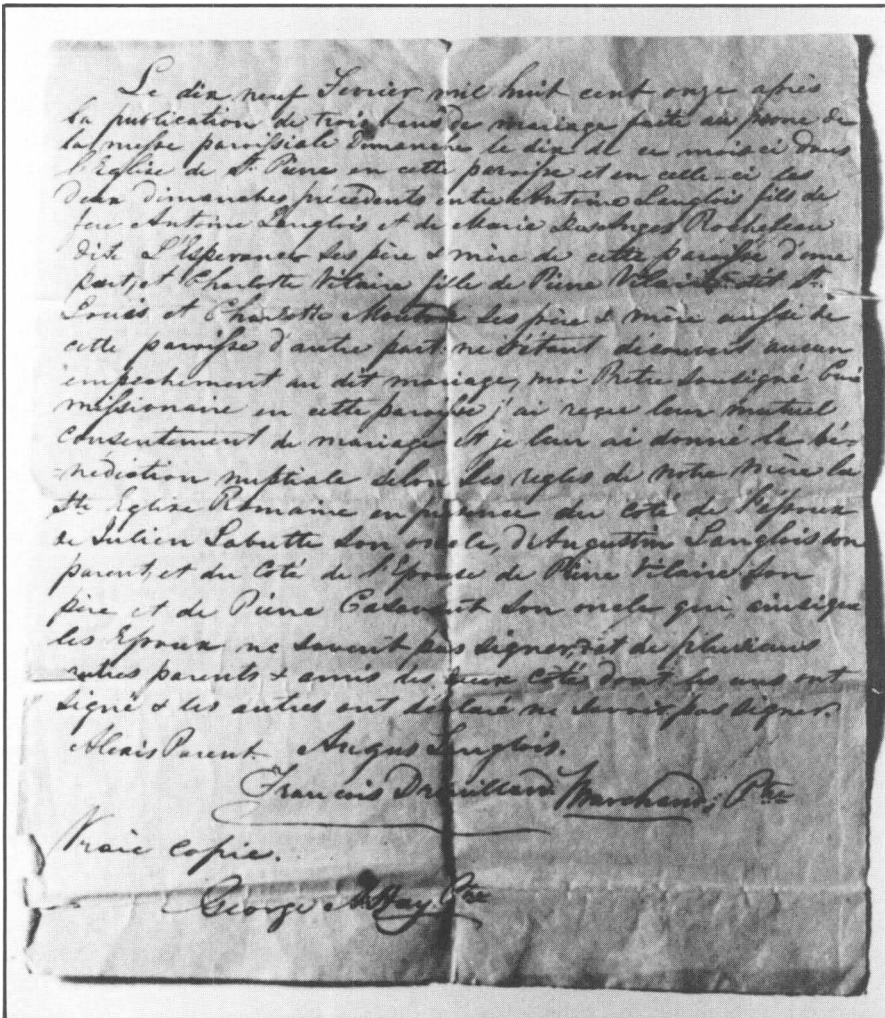 Le dix neuf Fevrier mil huit cent onze après
la publication de trois bans de mariage faite au prone de
la messe paroissiale Dimanche le dix de ce mois ci dans
l'Eglise de St. Pierre en cette paroisse et en celle-ci les
deux dimanches précédents entre Antoine Langlois fils de
feu Antoine Langlois et de Marie Desanges Rochefeau
dite L'Esperance ses père & mère de cette paroisse d'une
part, et Charlotte Vilaire fille de Pierre Vilaire dit St.
Louis et Charlotte ses père & mère aussi de
cette paroisse d'autre part ne s'étant découvert aucun
empechement au dit mariage, moi Pretre sousigné Curé
missionaire en cette paroisse j'ai reçu leur mutuel
consentement de mariage et je leur ai donné la bé-
-nédiction nuptiale selon les regles de notre mère la
Ste. Eglise Romaine en présence du coté de l'époux
de Julien Labutte son oncle, d'Augustin Langlois son
parent, et du Coté de l'Epouse de Pierre Vilaire son
père et de Pierre Casavant son oncle qui ainsique
les Epoux ne savent pas signer, et de plusieurs
autres parents & amis des deux cotés dont les uns ont
signé & les autres ont déclaré ne savoir pas signer.
Alexis Parent. Angus Langlois.
François Drouillard. Marchand, Ptre
Vraie Copie.
George A. Hay Ptre